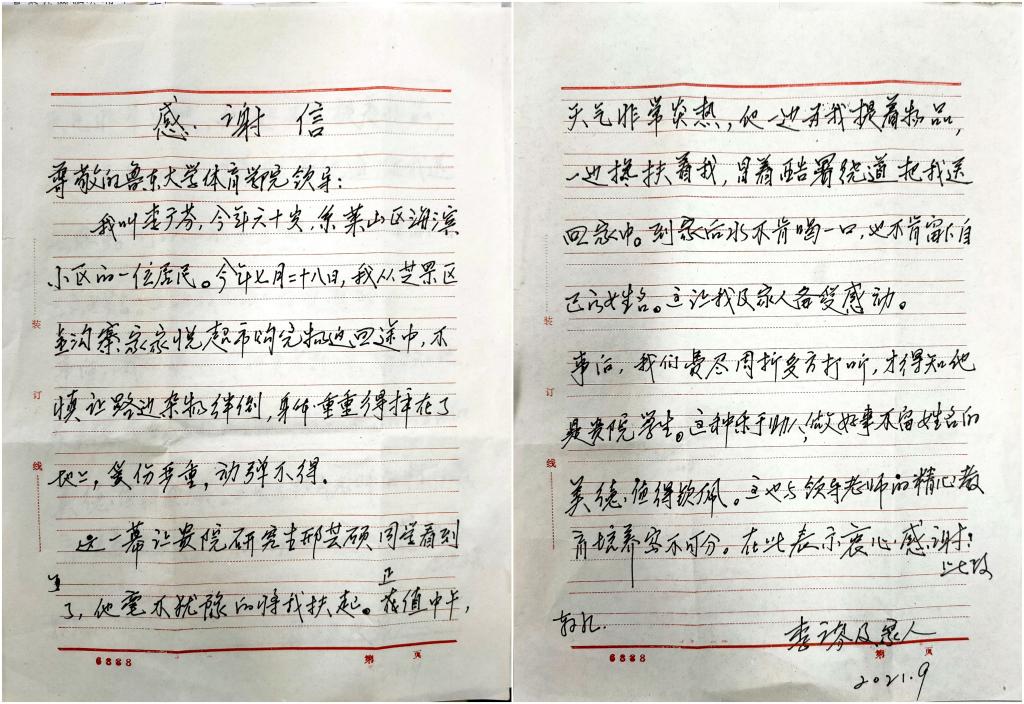 感谢信
尊敬的鲁东大学体育学院领导:
我叫李于芬,今年六十岁,系莱山区海滨
小区的一位居民。今年七月二十八日,我从芝罘区
沟寨家家悦超市购完物返回途中,不
慎让路边杂物绊倒,身体重重得摔在了
地上,受伤严重,动弹不得。
这一幕让贵院研究生邢芸硕同学看到
了,他毫不犹豫的将我扶起。正值中午,
6388
第 页
天气非常炎热,他一边为我提着物品,
一边搀扶着我,冒着酷暑绕道把我送
回家中。到家后水不肯喝一口,也不肯留下自
己的姓名。这让我及家人备受感动。
事后,我们费尽周折多方打听,才得知他
是贵院学生。这种乐于助人,做好事不留姓名的
美德,值得钦佩。这也与领导老师的精心教
育培养密不可分。在此表示衷心感谢!
此致
敬礼.
李 芬及家人
6388
第 页
2021.9
装
订
线
装
订
线